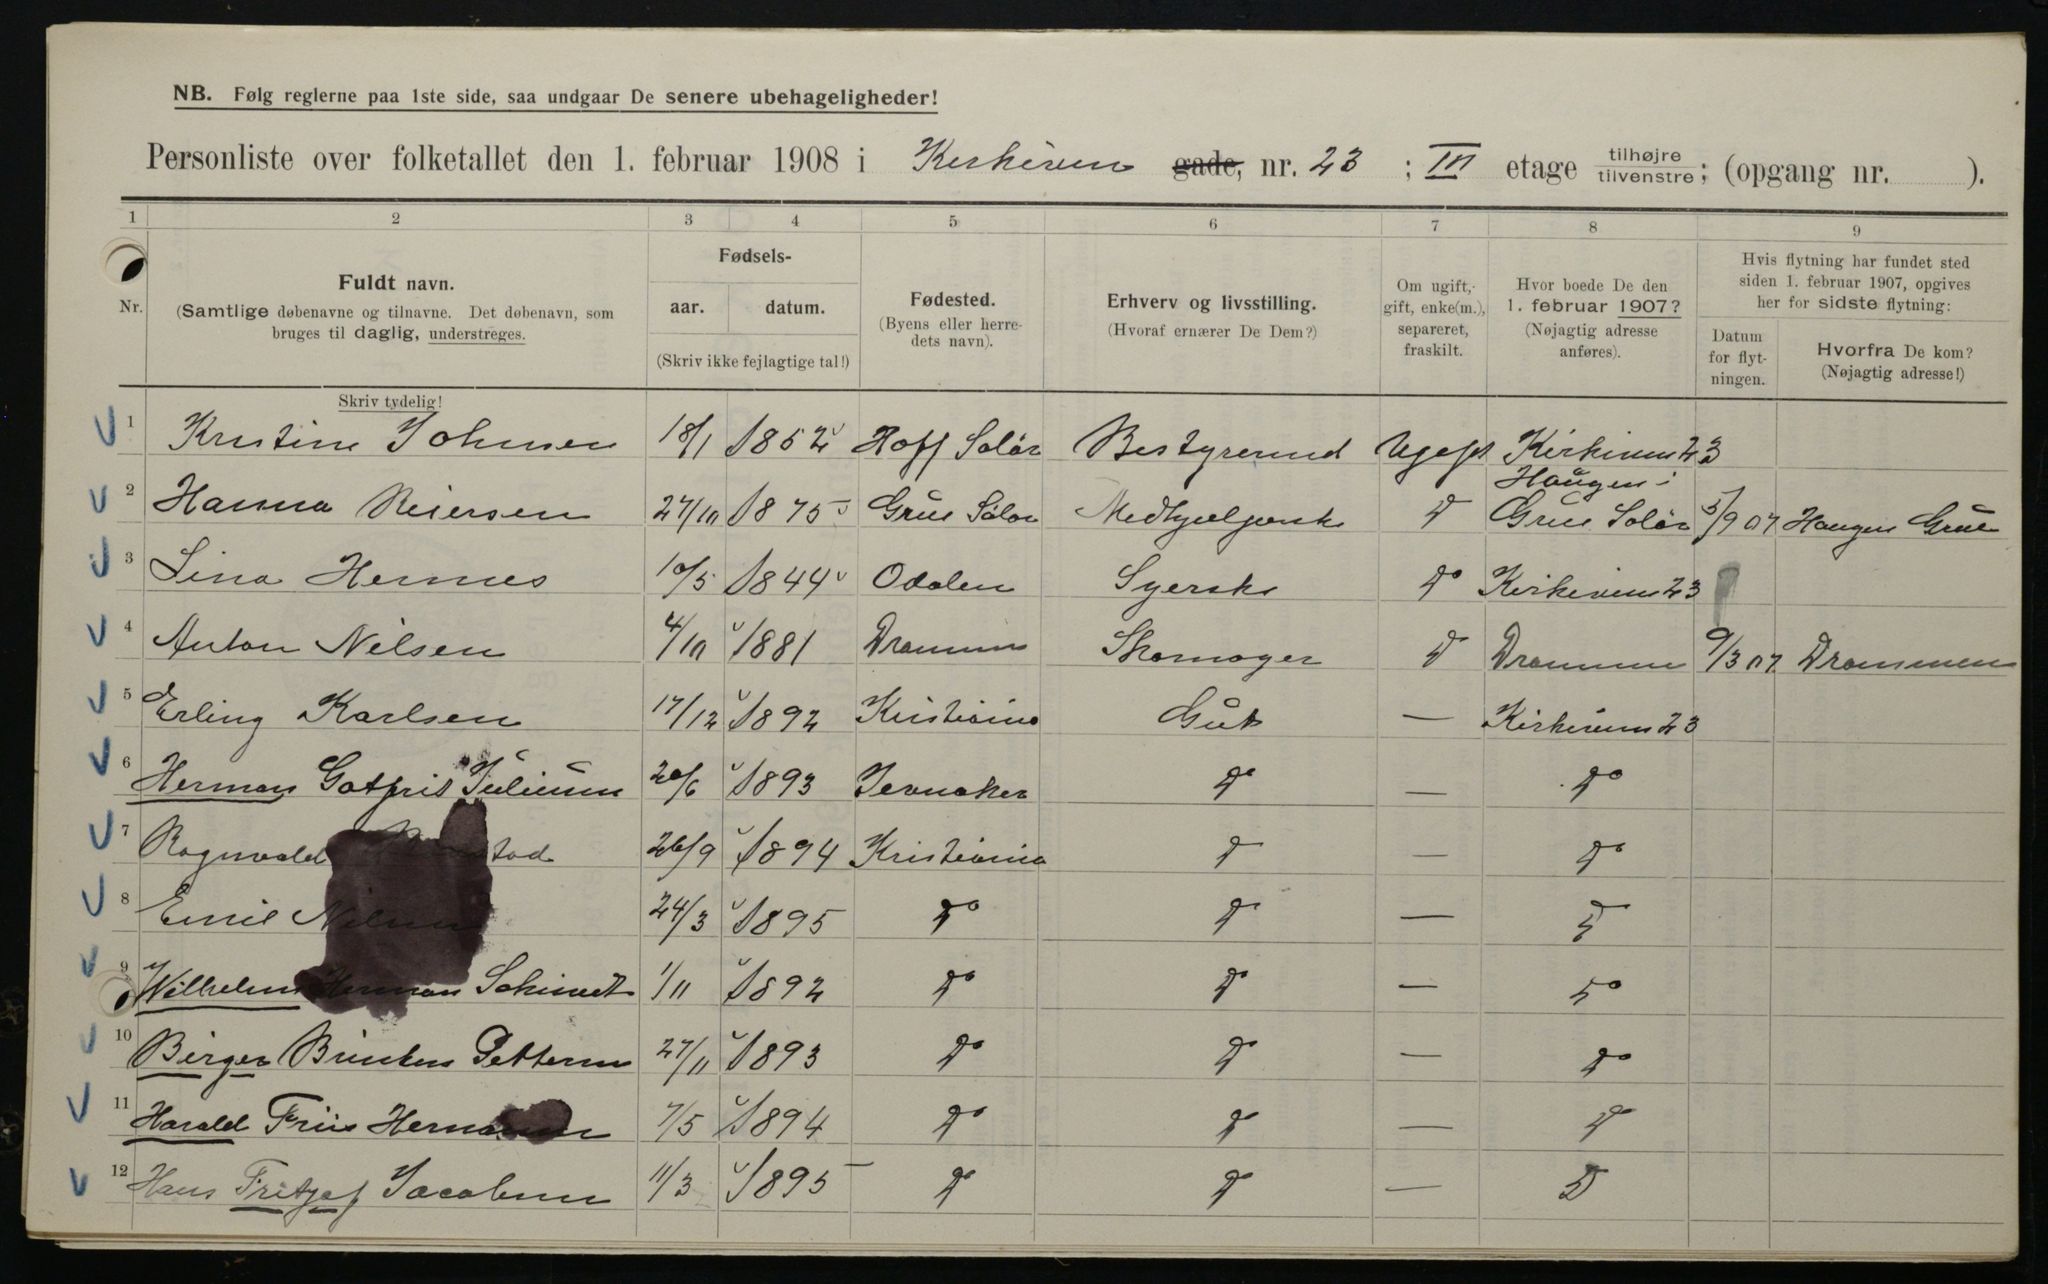 NB. Følg reglerne paa 1ste side, saa undgaar De senere ubehageligheder!
Personliste over folketallet den 1. februar 1908 i Kirkeveien gade, nr. 23 ; III etage tilhøjre tilvenstre ; (opgang nr. ).
1 2 3 4 5 6 7 8 9
Nr.
Fuldt navn.
(Samtlige døbenavne og tilnavne. Det døbenavn, som
bruges til daglig, understreges.
Skriv tydelig!
Fødsels-
aar. datum.
(Skriv ikke fejlagtige tal!)
Fødested.
(Byens eller herre-
dets navn).
Erhverv og livsstilling.
(Hvoraf ernærer De Dem?)
Om ugift,
gift, enke(m.),
separeret,
fraskilt.
Hvor boede De den
1. februar 1907?
(Nøjagtig adresse
anføres).
Hvis flytning har fundet sted
siden 1. februar 1907, opgives
her for sidste flytning:
Datum
for flyt-
ningen.
Hvorfra De kom?
(Nøjagtig adresse!)
1 Kristine Johnsen 18/1 1852 Hoff Solør Bestyrerind Ugift Kirkeveien 23
2 Hanna Reiersen 27/10 1875 Grue Solør Medhjelperske D Haugen i Grue Solør 5/9 07 Haugen Grue
3 Lina Hermes 10/5 1844 Odalen Syerske Do Kirkeveien 23
4 Anton Nilsen 4/10 1881 Drammen Skomager D Drammen 9/3 07 Drammen
5 Erling Karlsen 17/12 1892 Kristiania Gut — Kirkeveien 23
6 Herman Gotfril Juliussen 20/6 1893 Jevnaker Do — Do
7 Ragnvald 26/9 1894 Kristiania D — Do
8 Emil Nilsen 24/3 1895 Do D — D
9 Wilhelm Herman Schmidt 1/11 1892 Do Do — Do
10 Birger Petterson 27/11 1893 Do Do — Do
11 Harald Friis Hermansen 7/5 1894 Do Do — D
12 Hans Fritjof Jacobsen 11/3 1895 Do Do — D